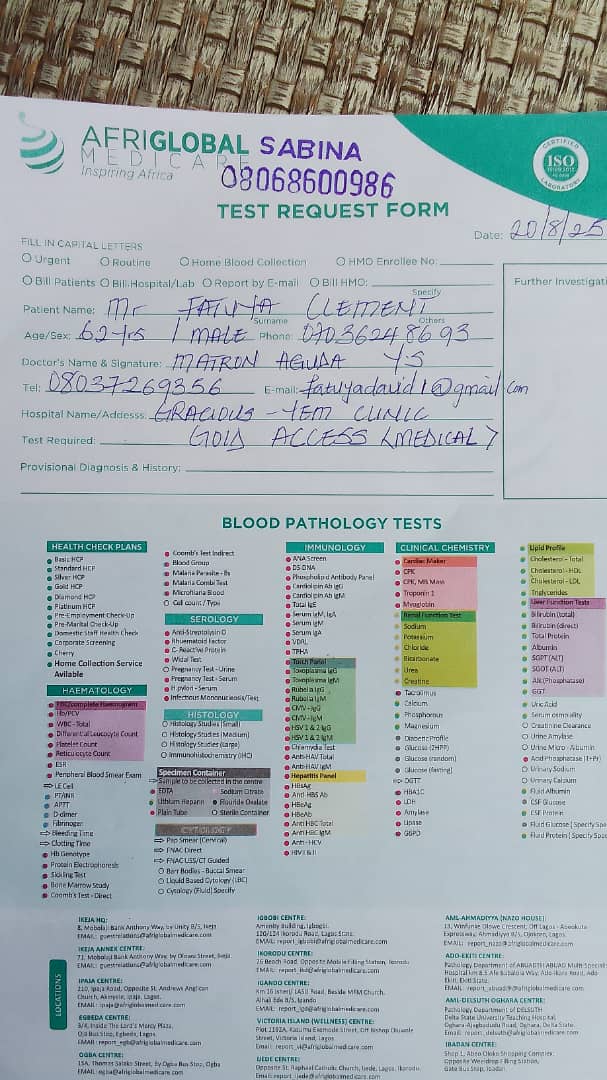 AFRIGLOBAL SABINA
MEDICARE
Inspiring Africa
08068600986
TEST REQUEST FORM
CERTIFIED
ISO
LABORATORY
Date: 20/8/25
FILL IN CAPITAL LETTERS
Urgent Routine Home Blood Collection HMO Enrollee No:
Bill Patients Bill.Hospital/Lab Report by E-mail Bill HMO:
Specify
Further Investigati
Patient Name: Mr FATUYA CLEMENT
Surname Others
Age/Sex: 62yrs / MALE Phone: 07036248693
Doctor's Name & Signature: MATRON AGUDA YS
Tel: 08037269356 E-mail: fatuyadavid1@gmail.com
Hospital Name/Addesss: GRACIOUS-YEM CLINIC
Test Required: GOLD ACCESS (MEDICAL)
Provisional Diagnosis & History:
BLOOD PATHOLOGY TESTS
HEALTH CHECK PLANS
Basic HCP
Standard HCP
Silver HCP
Gold HCP
Diamond HCP
Platinum HCP
Pre-Employment Check-Up
Pre-Marital Check-Up
Domestic Staff Health Check
Corporate Screening
Cherry
Home Collection Service
Avilable
HAEMATOLOGY
FBC/complete Haemogram
Hb/PCV
WBC - Total
Differential Leucocyte Count
Platelet Count
Reticulocyte Count
ESR
Peripheral Blood Smear Exam
LE Cell
PT/INR
APTT
D-dimer
Fibrinogen
Bleeding Time
Clotting Time
HB Genotype
Protein Electrophoresis
Sickling Test
Bone Marrow Study
Coomb's Test - Direct
Coomb's Test Indirect
Blood Group
Malaria Parasite - Bs
Malaria Combi Test
Microfilaria Blood
Cell count / Type
SEROLOGY
Anti-Streptolysin O
Rheumatoid Factor
C- Reactive Protein
Widal Test
Pregnancy Test - Urine
Pregnancy Test - Serum
H.pylori - Serum
Infectious Mononucleosis/Test
HISTOLOGY
Histology Studies (Small)
Histology Studies (Medium)
Histology Studies (Large)
Immunohistochemistry (IHC)
Specimen Container
Sample to be collected in the centre
EDTA Sodium Citrate
Lithium Heparin Flouride Oxalate
Plain Tube Sterile Container
CYTOLOGY
Pap Smear (Cervical)
FNAC Direct
FNAC USS/CT Guided
Barr Bodies - Buccal Smear
Liquid Based Cytology (LBC)
Cytology (Fluid) Specify
IMMUNOLOGY
ANA Screen
DS-DNA
Phospholipid Antibody Panel
Cardiolipin Ab IgG
Cardiolipin Ab IgM
Total IgE
Serum IgM, IgA
Serum IgM
Serum IgA
VDRL
TPHA
Torch Panel
Toxoplasma IgG
Toxoplasma IgM
Rubella IgG
Rubella IgM
CMV - IgG
CMV - IgM
HSV 1 & 2 IgG
HSV 1 & 2 IgM
Chlamydia Test
Anti-HAV Total
Anti-HAV IgM
Hepatitis Panel
HBsAg
Anti-HBS Ab
HBeAg
HBeAb
Anti HBC Total
Anti HBC IgM
Anti - HCV
HIV I & II
CLINICAL CHEMISTRY
Cardiac Maker
CPK
CPK, MB Mass
Troponin 1
Myoglobin
Renal Function Test
Sodium
Potassium
Chloride
Bicarbonate
Urea
Creatine
Tacrolimus
Calcium
Phosphorous
Magnesium
Diabetic Profile
Glucose (2HPP)
Glucose (random)
Glucose (fasting)
OGTT
HBA1C
LDH
Amylase
Lipase
G6PD
Lipid Profile
Cholesterol - Total
Cholesterol - HDL
Cholesterol - LDL
Triglycerides
Liver Function Tests
Bilirubin (total)
Bilirubin (direct)
Total Protein
Albumin
SGPT (ALT)
SGOT (ALT)
Alk (Phosphatase)
GGT
Uric Acid
Serum osmolality
Creatinine Clearance
Urine Amylase
Urine Micro - Albumin
Acid Phosphatase
Urinary Sodium
Urinary Calcium
Fluid Albumin
CSF Glucose
CSF Protein
Fluid Glucose ( Specify Spe
Fluid Protein ( Specify Spec
LOCATIONS
IKEJA HQ:
8, Mobolaji Bank Anthony Way, by Unity B/S, Ikeja
EMAIL: guestrelations@afriglobalmedicare.com
IKEJA ANNEX CENTRE:
71, Mobolaji Bank Anthony Way, by Dlowu Street, Ikeja
EMAIL: guestrelations@afriglobalmedicare.com
IPAJA CENTRE:
210, Ipaja Road, Opposite St. Andrews Anglican
Church, Akinyele, Ipaja, Lagos.
EMAIL: ipaja@afriglobalmedicare.com
EGBEDA CENTRE:
5/4, Inside The Lord's Mercy Plaza,
Oja Bus Stop, Egbeda, Lagos.
OGBA CENTRE:
15A, Thomas Salako Street, By Ogba Bus Stop, Ogba
EMAIL: ogba@afriglobalmedicare.com
IGBOBI CENTRE:
Amenity Building, Igbogbi.
120/124 Ikorodu Road, Lagos State.
IKORODU CENTRE:
26 Beach Road, Opposite Mobile Filling Station, Ikorodu
IGANDO CENTRE:
Km 16 Isheri/ LASU Road, Beside MFM Church,
Alhaji Ede B/S, Igando
VICTORIA ISLAND (WELLNESS) CENTRE:
Plot 1192A, Kasumu Ekemode Street, Off Bishop Oluwole
Street, Victoria Island, Lagos
IJEDE CENTRE:
Opposite St. Raphael Catholic Church, Ijede, Lagos, Ikorodu.
AML-AHMADIYYA (NAZO HOUSE):
13, Winfunke Olowe Crescent, Off Lagos - Abeokuta
Expressway, Ahmadiyya B/S, Ojokoro, Lagos.
ADO-EKITI CENTRE:
AML-DELSUTH OGHARA CENTRE:
Pathology Department of DELSUTH
Delta State University Teaching Hospital,
IBADAN CENTRE:
Shop 1, Abeo Oloko Shopping Complex,
Gate Bus Stop, Ibadan